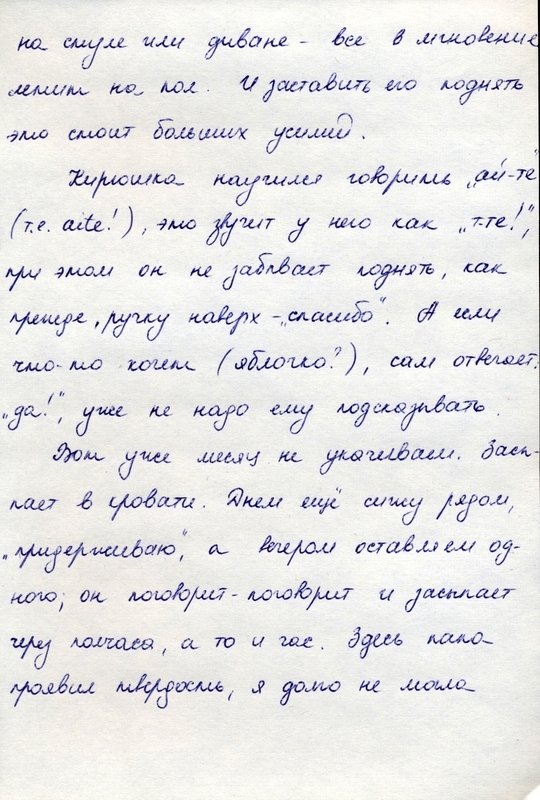 на стуле или диване – все в мгновение
летит на пол. И заставить его поднять
это стоит больших усилий.
Кирюшка научился говорить „ай-те"
(т.е. aitе!), это звучит у него как „т-те!",
при этом он не забывает поднять, как
прежде, ручку наверх – „спасибо". А если
что-то хочет (яблочко?), сам отвечает:
„да!", уже не надо ему подсказывать.
Вот уже месяц не укачиваем. Засы-
пает в кровати. Днем ещё сижу рядом,
„придерживаю", а вечером оставляем од-
ного; он поговорит-поговорит и засыпает
через полчаса, а то и час. Здесь папа
проявил твердость, я долго не могла